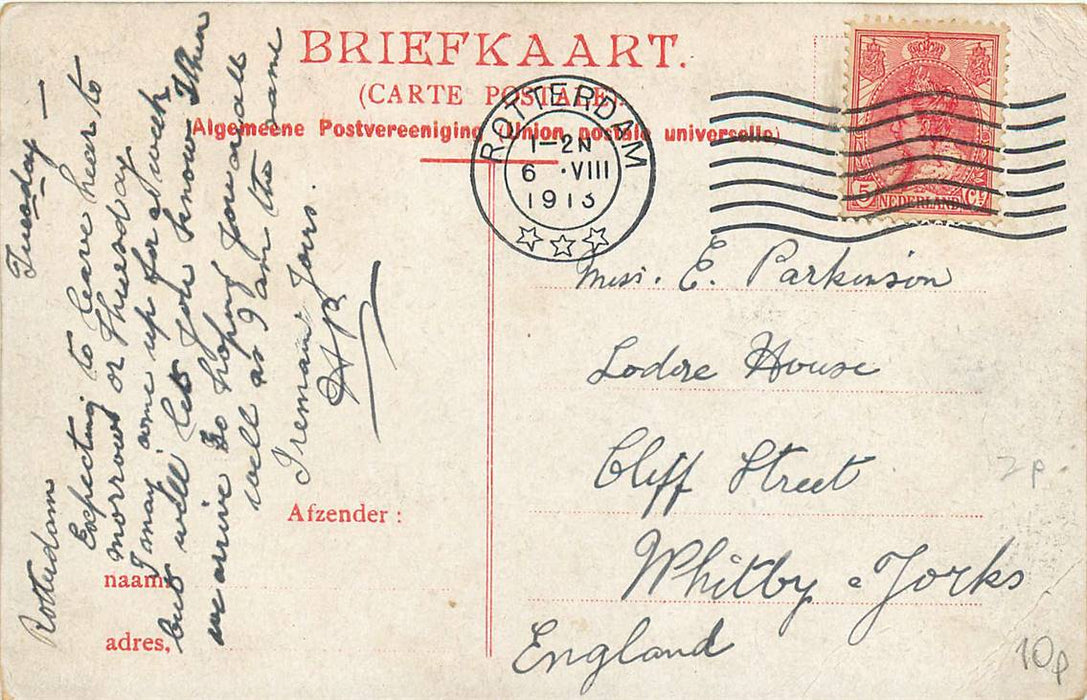 BRIEFKAART.
(CARTE POSTALE).
Algemeene Postvereeniging (Union postale universelle)
ROTTERDAM
1-2N
6 ·VIII
1913
5 NEDERLAND Ct
Rotterdam Tuesday —
Expecting to leave hear to
morrow or thuesday
I may come up for a week
but will let you know when
we arrive So hoping you are all
well as I am the same
I remain Yours.
Afzender :
naam,
adres,
Miss. E. Parkinson
Lodre House
Cliff Street
Whitby Yorks
England
2p
10p